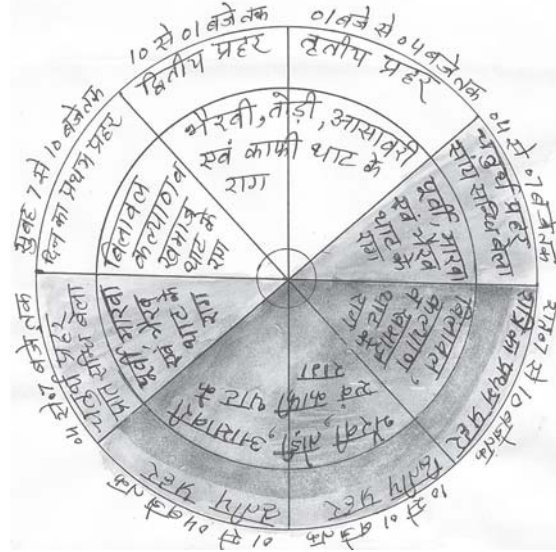 सुबह 7 से 10 बजे तक
दिन का प्रथम प्रहर
बिलावल
कल्याण व
खमाज
थाट के
राग
10 से 01 बजे तक
द्वितीय प्रहर
01 बजे से 04 बजे तक
तृतीय प्रहर
भैरवी, तोड़ी, आसावरी
एवं काफी थाट के
राग
04 से 07 बजे तक
चतुर्थ प्रहर
सांय सन्धि बेला
पूर्वी, मारवा
एवं भैरव
थाट के
राग
रात 7 से 10 बजे तक
रात्रि का प्रथम प्रहर
बिलावल,
कल्याण
व खमाज
थाट के
राग
10 से 01 बजे तक
द्वितीय प्रहर
01 से 04 बजे तक
तृतीय प्रहर
भैरवी, तोड़ी, आसावरी
एवं काफी थाट के
राग
04 से 07 बजे तक
चतुर्थ प्रहर
प्रातः सन्धि बेला
पूर्वी मारवा
एवं भैरव
थाट के
राग